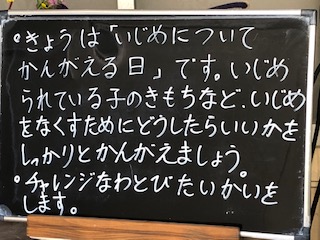 ・きょうは「いじめについて
かんがえる日」です。いじめ
られている子のきもちなど、いじめ
をなくすためにどうしたらいいかを
しっかりとかんがえましょう。
・チャレンジなわとびたいかいを
します。